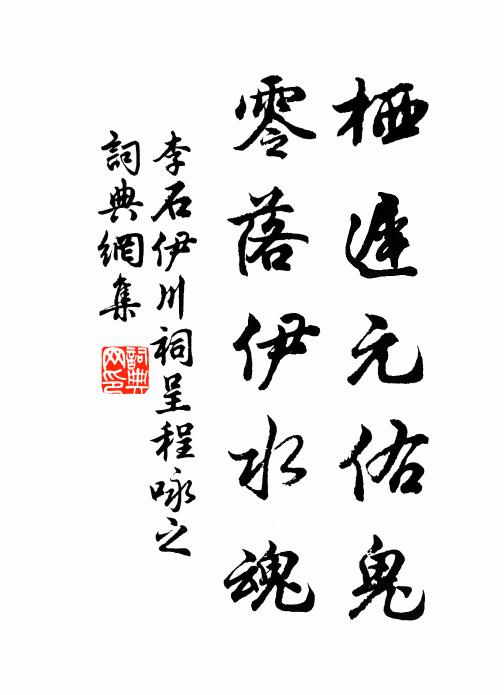 栖遲元佑鬼
零落伊水魂
李石伊川祠呈程咏之
詞典網集
詞典網印